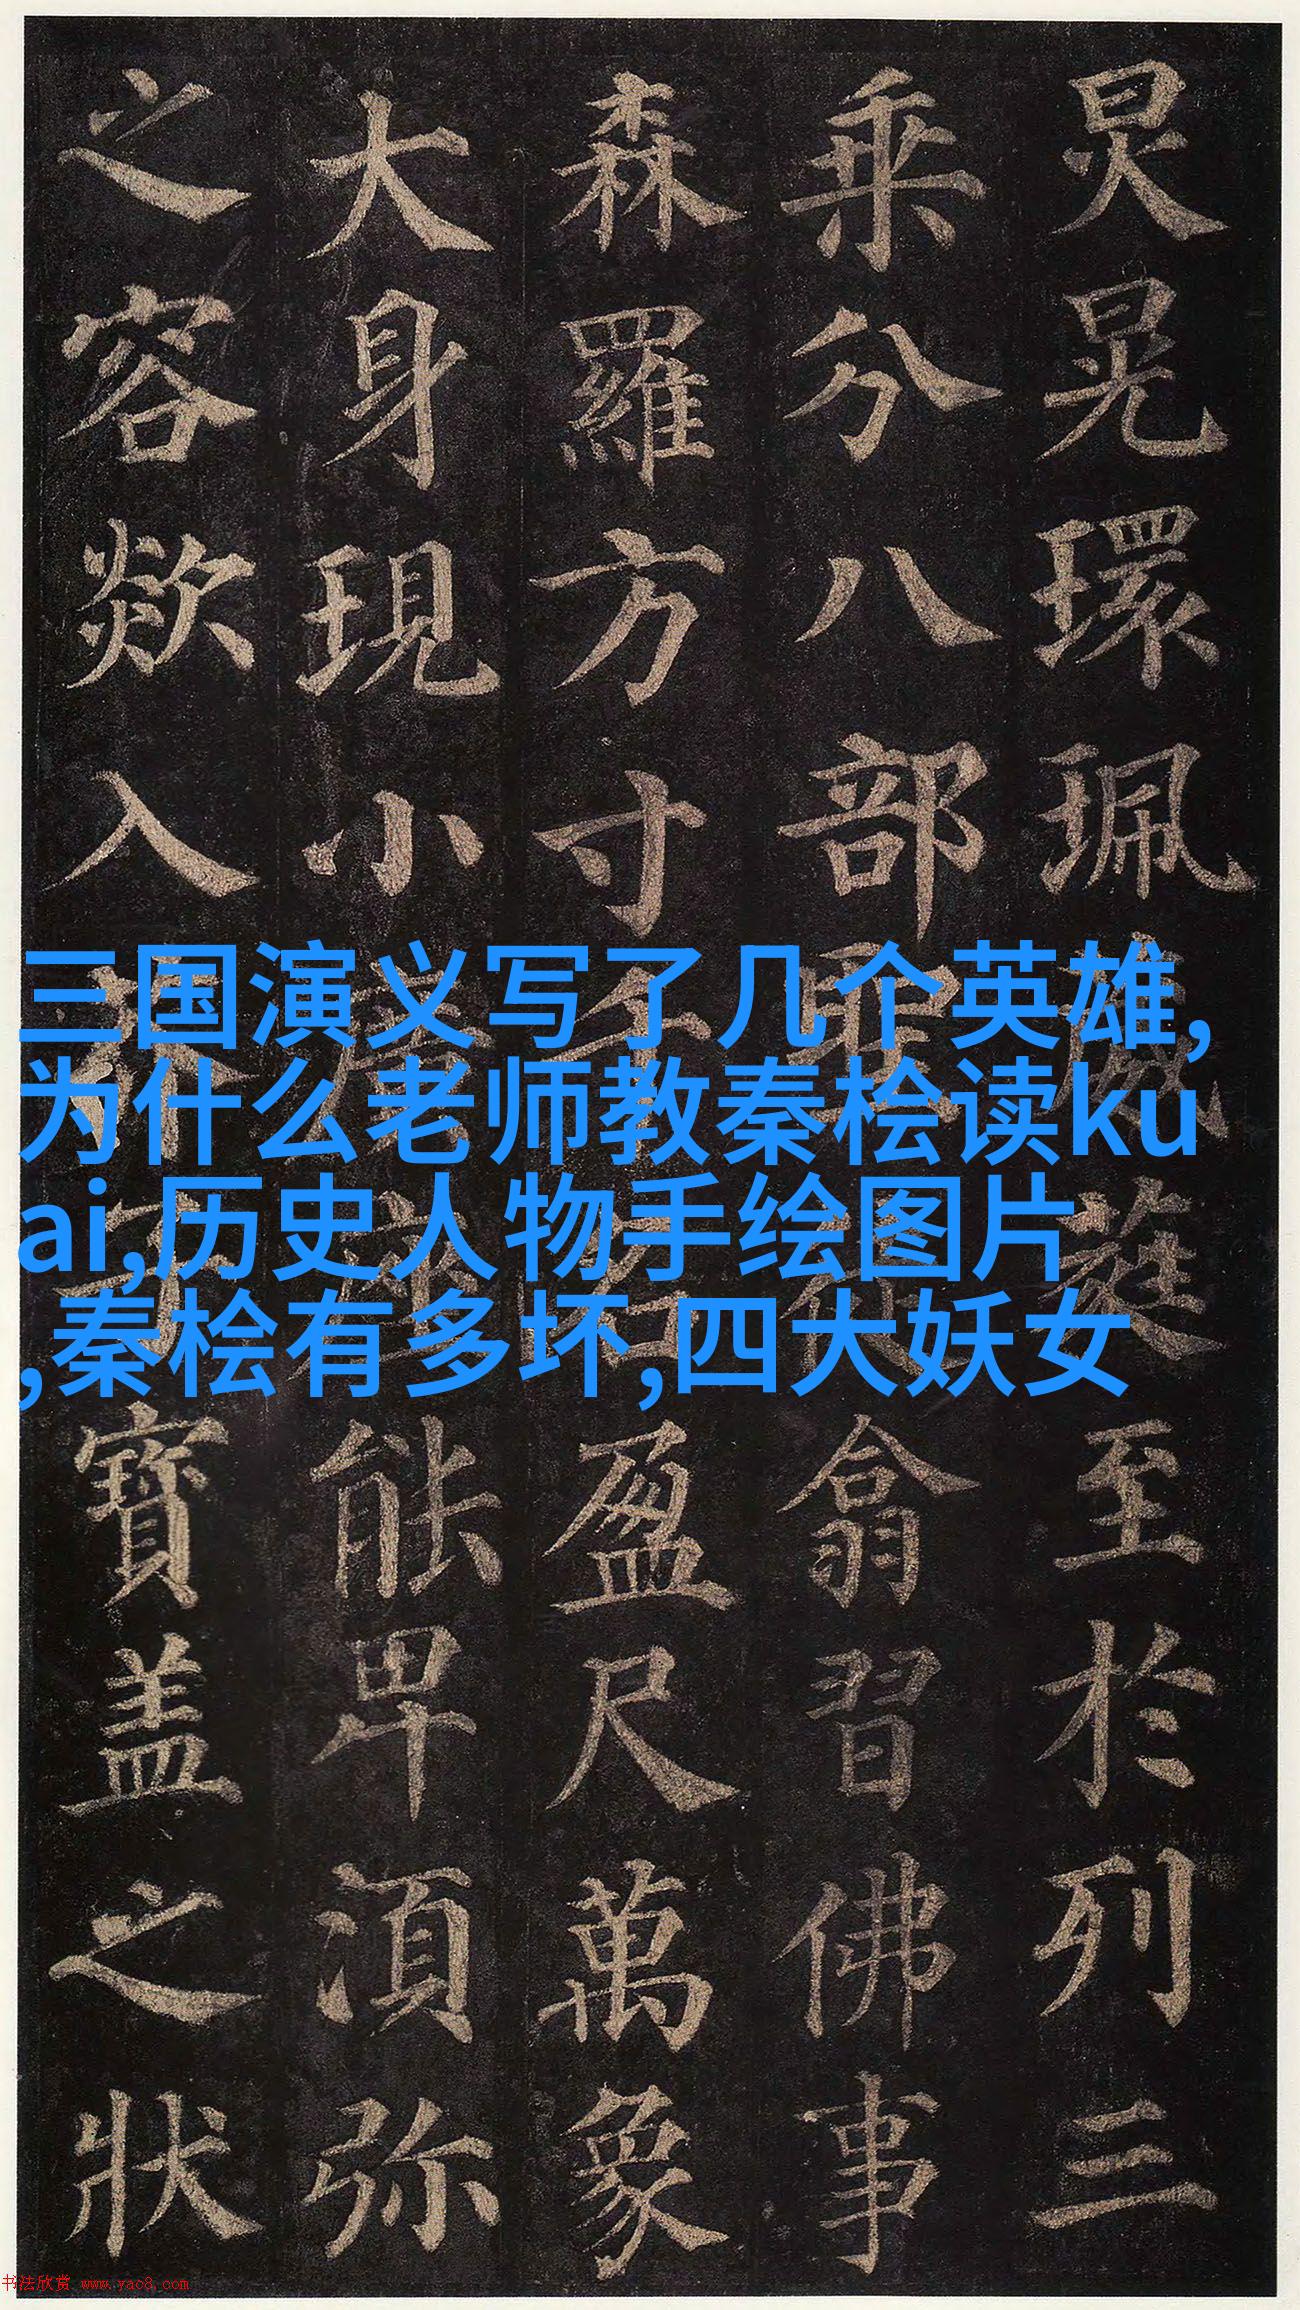 三国演义写了几个英雄,
为什么老师教秦桧读ku
ai,历史人物手绘图片
,秦桧有多坏,四大妖女
炅晃環珮葳蕤至於列三
乘分八部聖徒翕習佛事
森羅方寸千名盈尺萬象
大身現小廣座能卑須弥
之容欻入芥子寶盖之狀
书法欣赏 www.yac8.com